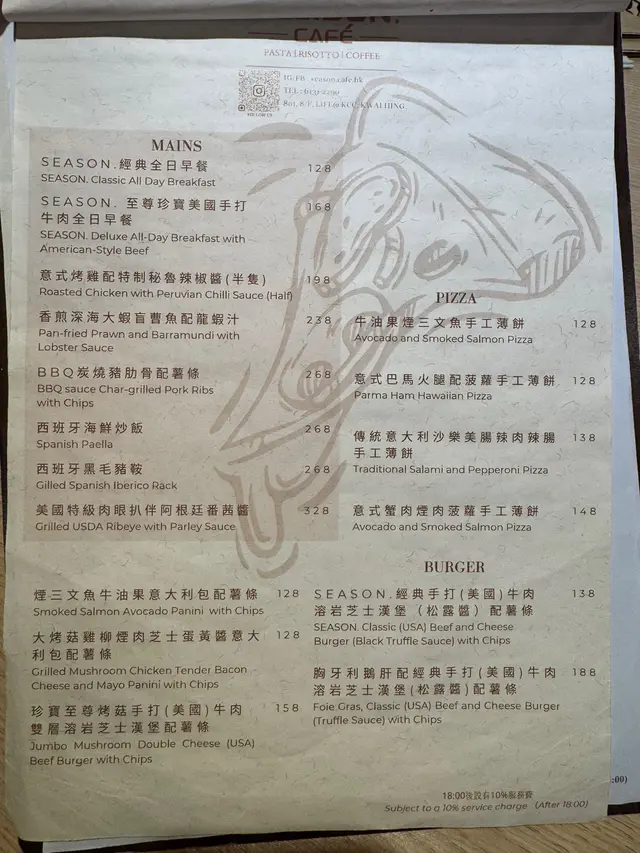 CAFÉ
PASTA | RISOTTO | COFFEE
IG/FB : season.cafe.hk
TEL :
801, 8/F, LIFE@KCC, KWAI HING
MAINS
SEASON.經典全日早餐 128
SEASON. Classic All Day Breakfast
SEASON. 至尊珍寶美國手打 168
牛肉全日早餐
SEASON. Deluxe All-Day Breakfast with
American-Style Beef
意式烤雞配特制秘魯辣椒醬(半隻) 198
Roasted Chicken with Peruvian Chilli Sauce (Half)
香煎深海大蝦盲曹魚配龍蝦汁 238
Pan-fried Prawn and Barramundi with
Lobster Sauce
BBQ炭燒豬肋骨配薯條 268
BBQ sauce Char-grilled Pork Ribs
with Chips
西班牙海鮮炒飯 268
Spanish Paella
西班牙黑毛豬鞍 268
Gilled Spanish Iberico Rack
美國特級肉眼扒伴阿根廷番茜醬 328
Grilled USDA Ribeye with Parley Sauce
PIZZA
牛油果煙三文魚手工薄餅 128
Avocado and Smoked Salmon Pizza
意式巴馬火腿配菠蘿手工薄餅 128
Parma Ham Hawaiian Pizza
傳統意大利沙樂美腸辣肉辣腸 138
手工薄餅
Traditional Salami and Pepperoni Pizza
意式蟹肉煙肉菠蘿手工薄餅 148
Avocado and Smoked Salmon Pizza
煙三文魚牛油果意大利包配薯條 128
Smoked Salmon Avocado Panini with Chips
大烤菇雞柳煙肉芝士蛋黃醬意大 128
利包配薯條
Grilled Mushroom Chicken Tender Bacon
Cheese and Mayo Panini with Chips
珍寶至尊烤菇手打(美國)牛肉 158
雙層溶岩芝士漢堡配薯條
Jumbo Mushroom Double Cheese (USA)
Beef Burger with Chips
BURGER
SEASON.經典手打(美國)牛肉 138
溶岩芝士漢堡（松露醬）配薯條
SEASON. Classic (USA) Beef and Cheese
Burger (Black Truffle Sauce) with Chips
胸牙利鵝肝配經典手打(美國)牛肉 188
溶岩芝士漢堡(松露醬)配薯條
Foie Gras, Classic (USA) Beef and Cheese Burger
(Truffle Sauce) with Chips
18:00後設有10%服務費
Subject to a 10% service charge (After 18:00)
:00)